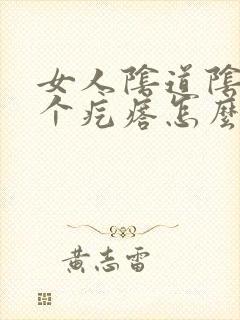 女人陰道陰
个疙瘩怎麼
黃志雷